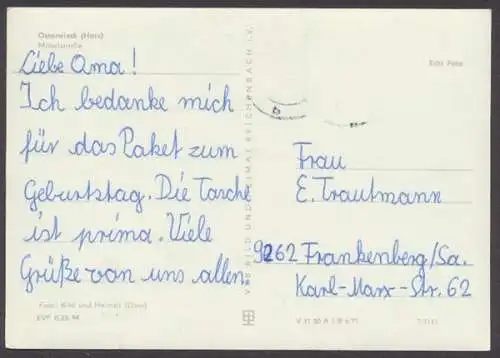 Osterwieck (Harz)
Mittelstraße
Liebe Oma!
Ich bedanke mich
für das Paket zum
Geburtstag. Die Tasche
ist prima. Viele
Grüße von uns allen.
Foto: Bild und Heimat
EVP 0,20 M
VEB BILD UND HEIMAT REICHENBACH i.V.
Echt Foto
Frau
E. Trautmann
9262 Frankenberg/Sa.
Karl-Marx-Str. 62